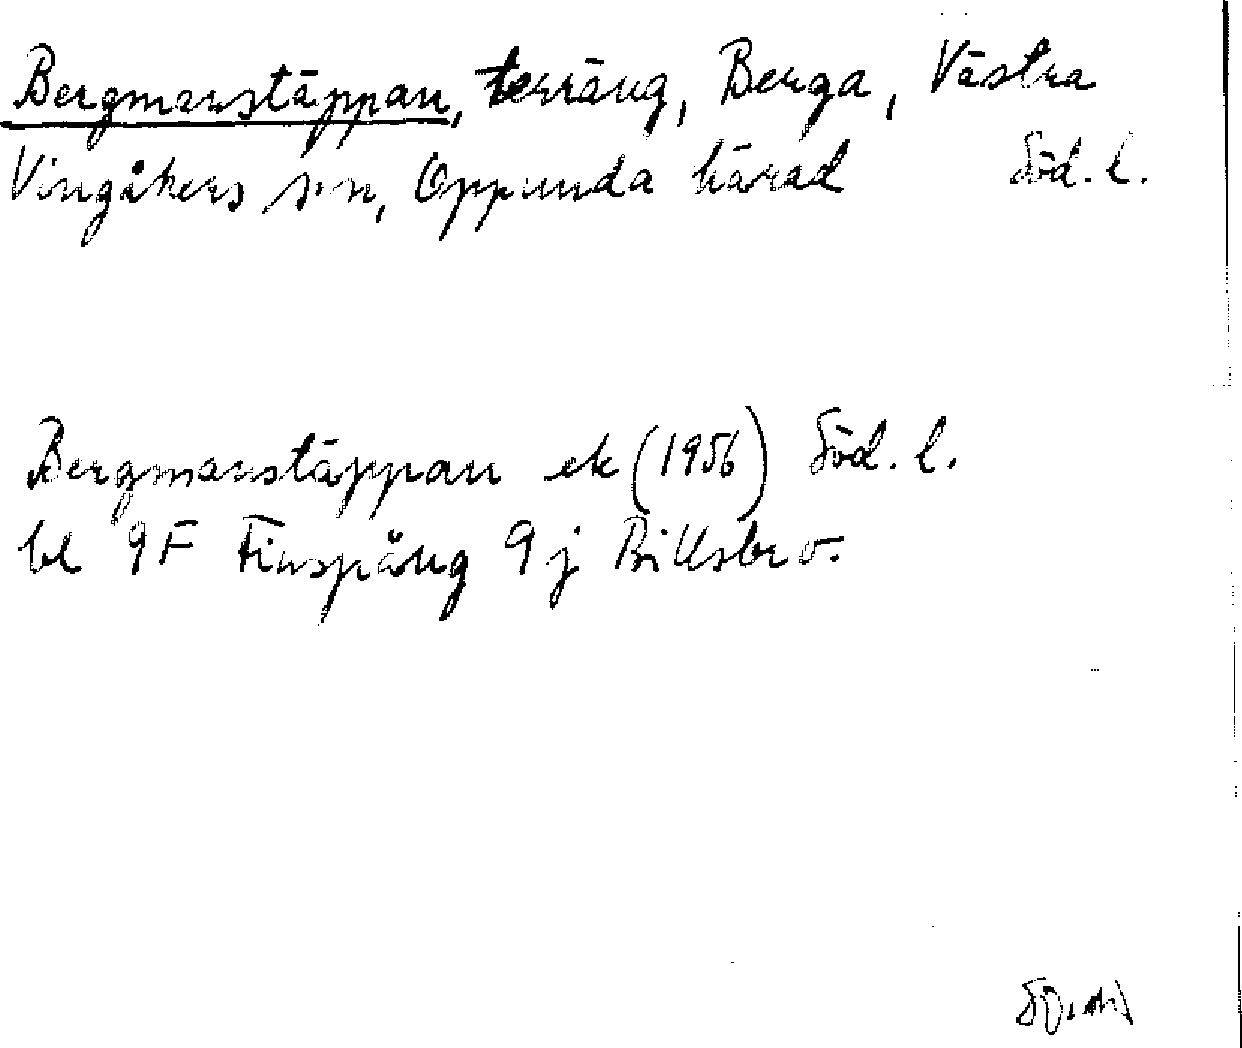 Bergmanstäppan, terräng, Berga, Västra
Vingåkers sn, Oppunda härad Söd. l.
Bergmanstäppan ek (1956) Söd. l.
bl 9F Finspång 9j Billsbro.